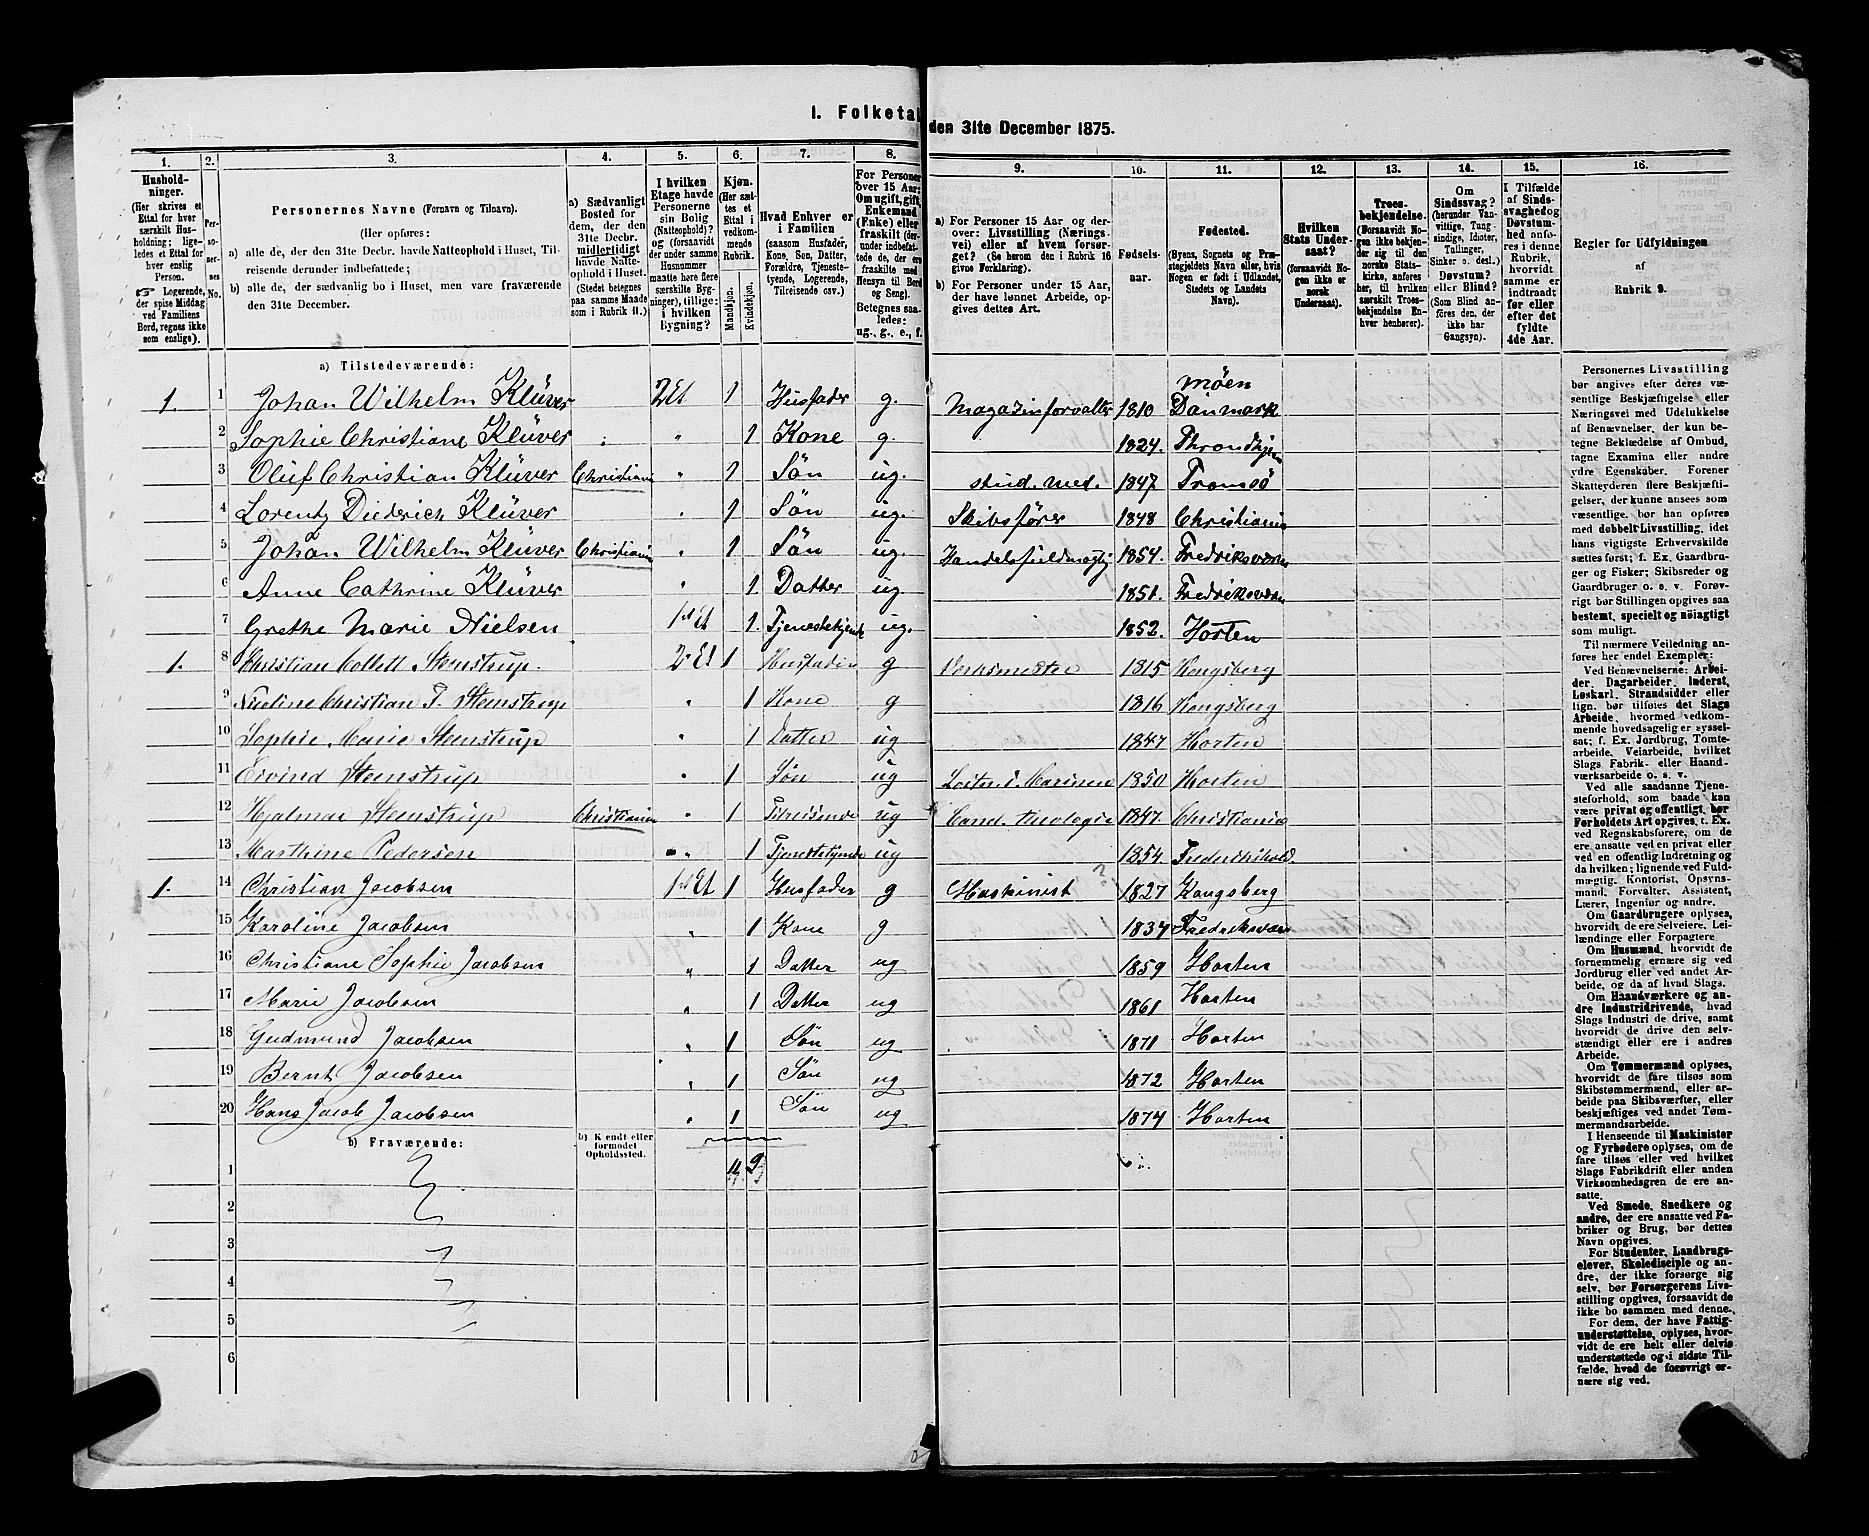 I. Folketal den 31te December 1875.
1. 2. 3. 4. 5. 6. 7. 8. 9. 10. 11. 12. 13. 14. 15. 16.
Husholdninger.
(Her skrives et
Ettal for hver
særskilt Husholdning;
ligeledes et Ettal
for hver
enslig
Person.
☞ Logerende,
der spise Middag
ved Familiens
Bord, regnes ikke
som enslige).
Personernes No.
Personernes Navne (Fornavn og Tilnavn).
(Her opføres:
a) alle de, der den 31te Decbr. havde Natteophold i Huset, Tilreisende derunder indbefattede;
b) alle de, der sædvanlig bo i Huset, men vare fraværende
den 31te December.
a) Sædvanligt
Bosted for
dem, der den
31te Decbr.
midlertidig
havde Natteophold
i Huset.
(Stedet betegnes
paa samme Maade
som i Rubrik 11.)
I hvilken
Etage havde
Personerne
sin Bolig
(Natteophold)?
og (forsaavidt
der under samme
Husnummer
maatte høre flere
særskilte Bygninger),
tillige:
i hvilken
Bygning?
Kjøn.
(Her sættes
et
Ettal i
vedkommende
Rubrik.
Mandkjøn.
Kvindekjøn.
Hvad Enhver er
i Familien
(saasom Husfader,
Kone, Søn, Datter,
Forældre, Tjenestetyende,
Logerende,
Tilreisende osv.)
For Personer
over 15 Aar:
Om ugift, gift,
Enkemand
(Enke) eller
fraskilt (derunder
indbefattede
de, der ere
fraskilte med
Hensyn til Bord
og Seng).
Betegnes saaledes:
ug., g., e., f.
a) For Personer 15 Aar og derover:
Livsstilling (Næringsvei)
eller af hvem forsørget?
(Se herom den i Rubrik 16
givne Forklaring).
b) For Personer under 15 Aar,
der have lønnet Arbeide, opgives
dettes Art.
Fødselsaar.
Fødested.
(Byens, Sognets og Præstegjeldets
Navn eller, hvis
Nogen er født i Udlandet,
Stedets og Landets
Navn).
Hvilken
Stats Undersaat?
(forsaavidt Nogen
ikke er
norsk
Undersaat).
Troesbekjendelse.
(Forsaavidt Nogen
ikke bekjender
sig til den
norske Statskirke,
anføres
her, til hvilken
særskilt Troesbekjendelse
Enhver
henhører).
Om
Sindssvag?
(herunder Vanvittige,
Tungsindige,
Idioter,
Tullinger,
Sinker o. desl.)
Døvstum?
eller Blind?
(Som Blind anføres
den, der
ikke har
Gangsyn).
I Tilfælde
af Sindssvaghed
og
Døvstumhed
anføres
i denne
Rubrik,
hvorvidt
samme er
indtraadt
før eller
efter det
fyldte
4de Aar.
Regler for Udfyldningen
af
Rubrik 9.
a) Tilstedeværende:
1. 1 Johan Wilhelm Klüver 2 Et 1 Husfader g. Magazinforvalter 1810 Møen Danmark
2 Sophie Christiane Klüver " 1 Kone g. 1824. Throndhjem
3 Oluf Christian Klüver Christiania " 1 Søn ug. stud. med. 1847 Tromsö
4 Lorentz Diederich Klüver " 1 Søn ug. Skibsfører 1848 Christiania
5 Johan Wilhelm Klüver Christiania " 1 Søn ug. Handelsfuldmægtig 1854. Fredriksværn
6 Anne Cathrine Klüver " 1 Datter ug. 1851. Fredriksværn
7 Grethe Marie Nielsen 1st Et 1. Tjenestetyende ug. 1852. Horten
1. 8 Christian Collett Steenstrup. 2 Et 1 Husfader g Værksmester 1815 Kongsberg
9 Nicoline Christian T. Steenstrup " 1 Kone g 1816 Kongsberg
10 Sophie Marie Steenstrup " 1 Datter ug 1847 Horten
11 Eivind Steenstrup " 1 Søn ug i Marinen 1850 Horten
12 Hjalmar Steenstrup Christiania " 1 Tilreisende ug Cand. theologiæ 1847 Christiania
13 Marthine Pedersen " 1 Tjenestetyende ug 1854 Frederikshald
1. 14 Christian Jacobsen 1st Et 1 Husfader g Maskinist ? 1827 Kongsberg
15 Karoline Jacobsen " 1 Kone g 1834 Fredriksværn
16 Christiane Sophie Jacobsen " 1 Datter ug 1859 Horten
17 Marie Jacobsen " 1 Datter ug 1861 Horten
18 Gudmund Jacobsen " 1 Søn ug 1871 Horten
19 Bernt Jacobsen " 1 Søn ug 1872 Horten
20 Hans Jacob Jacobsen " 1 Søn ug 1874 Horten
b) Fraværende:
b) Kjendt eller
formodet
Opholdssted.
1 11. 9
2
3
4
5
6
Personernes Livsstilling
bør angives efter deres væsentlige
Beskjæftigelse eller
Næringsvei med Udelukkelse
af Benævnelser, der kun betegne
Beklædelse af Ombud,
tagne Examina eller andre
ydre Egenskaber. Forener
Skatteyderen flere Beskjæftigelser,
der kunne ansees som
væsentlige, bør han opføres
med dobbelt Livsstilling, idet
hans vigtigste Erhvervskilde
sættes først; f. Ex. Gaardbruger
og Fisker; Skibsreder og
Gaardbruger o. s. v. Forøvrigt
bør Stillingen opgives saa
bestemt, specielt og nöiagtigt
som muligt.
Til nærmere Veiledning anføres
her endel Exempler:
Ved Benævnelserne: Arbeider,
Dagarbeider, Inderst,
Løskarl, Strandsidder eller
lign. bør tilføies det Slags
Arbeide, hvormed vedkommende
hovedsagelig er sysselsat;
f. Ex. Jordbrug, Tomtearbeide,
Veiarbeide, hvilket
Slags Fabrik- eller Haandværksarbeide
o. s. v.
Ved alle saadanne Tjenesteforhold,
som baade kan
være privat og offentligt, bør
Forholdets Art opgives, f. Ex.
ved Regnskabsførere, om de
ere ansatte ved en privat eller
ved en offentlig Indretning og
da hvilken; lignende ved Fuldmægtig,
Kontorist, Opsynsmand,
Forvalter, Assistent,
Lærer, Ingeniør og andre.
Om Gaardbrugere oplyses,
hvorvidt de ere Selveiere, Leilændinge
eller Forpagtere.
Om Husmænd, hvorvidt de
fornemmelig ernære sig ved
Jordbrug eller ved andet Arbeide,
og da af hvad Slags.
Om Haandværkere og andre
Industridrivende, hvad
Slags Industri de drive, samt
hvorvidt de drive den selvstændigt
eller ere i andres
Arbeide.
Om Tømmermænd oplyses,
hvorvidt de fare tilsøs som
Skibstømmermænd, eller arbeide
paa Skibsværfter, eller
beskjæftiges ved andet Tømmermandsarbeide.
I Henseende til Maskinister
og Fyrbødere oplyses, om de
fare tilsøs eller ved hvilket
Slags Fabrikdrift eller anden
Virksomhedsgren de ere ansatte.
Ved Smede, Snedkere og
andre, der ere ansatte ved Fabriker
og Brug, bør dettes
Navn opgives.
For Studenter, Landbrugselever,
Skoledisciple og andre,
der ikke forsørge sig
selv, bør Forsørgerens Livsstilling
opgives, forsaavidt de
ikke bo sammen med denne.
For dem, der have Fattigunderstøttelse,
oplyses, hvorvidt
de ere helt eller delvis
understøttede og i sidste Tilfælde,
hvad de forøvrigt ernære
sig ved.